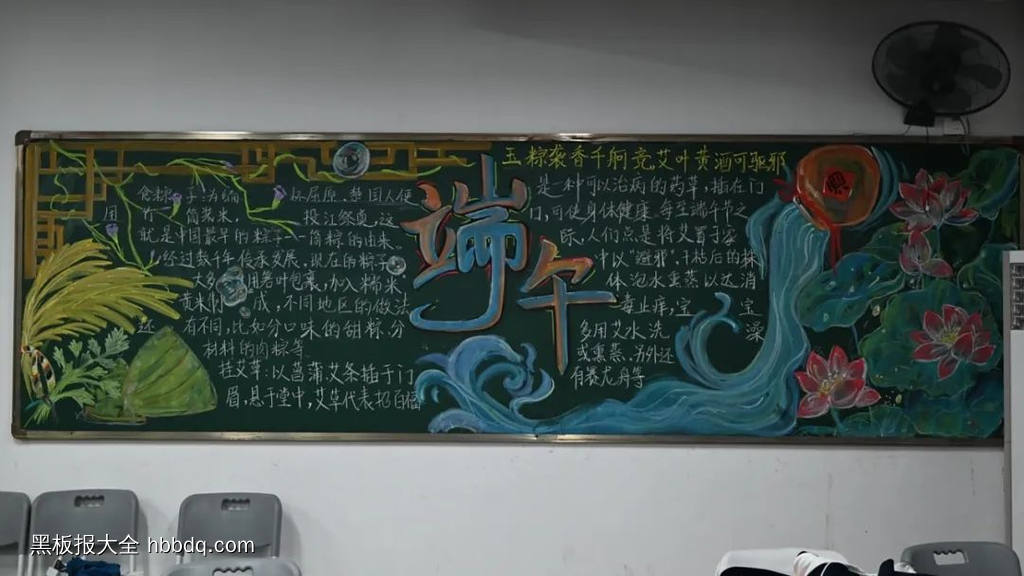 玉粽袭香千舸竞,艾叶黄酒可驱邪
端午
食粽子:为
屈原,楚国人便
用竹筒装米,
投江祭奠,这
就是中国最早的粽子——筒粽的由来。
经过数千年传承发展,现在的粽子
大多用苇叶包裹,加入糯米、
黄米
成,不同地区的做法
还有不同,比如分口味的甜粽,分
材料的肉粽等。
挂艾草:以菖蒲、艾条插于门
眉,悬于堂中,艾草代表招百福
是一种可以治病的药草,插在门
口,可使身体健康。每至端午节之
际,人们总是将艾置于家
中以“避邪”,干枯后的株
体泡水熏蒸以达消
毒止痒,
多用艾水洗澡
或熏蒸。另外还
有赛龙舟等
黑板报大全 hbbdq.com